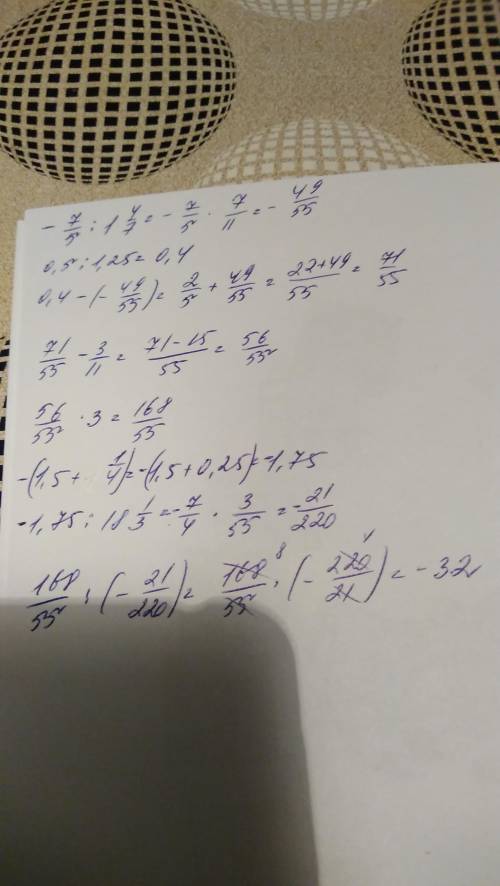 - 7/5 : 1 4/7 = - 7/5 · 7/11 = - 49/55
0,5 : 1,25 = 0,4
0,4 - (- 49/55) = 2/5 + 49/55 = 22+49/55 = 71/55
71/55 - 3/11 = 71-15/55 = 56/55
56/55 · 3 = 168/55
-(1,5 + 1/4) = -(1,5 + 0,25) = -1,75
-1,75 : 18 1/3 = - 7/4 · 3/55 = - 21/220
168/55 : (- 21/220) = 168 8/55 · (- 220 4/21) = -32